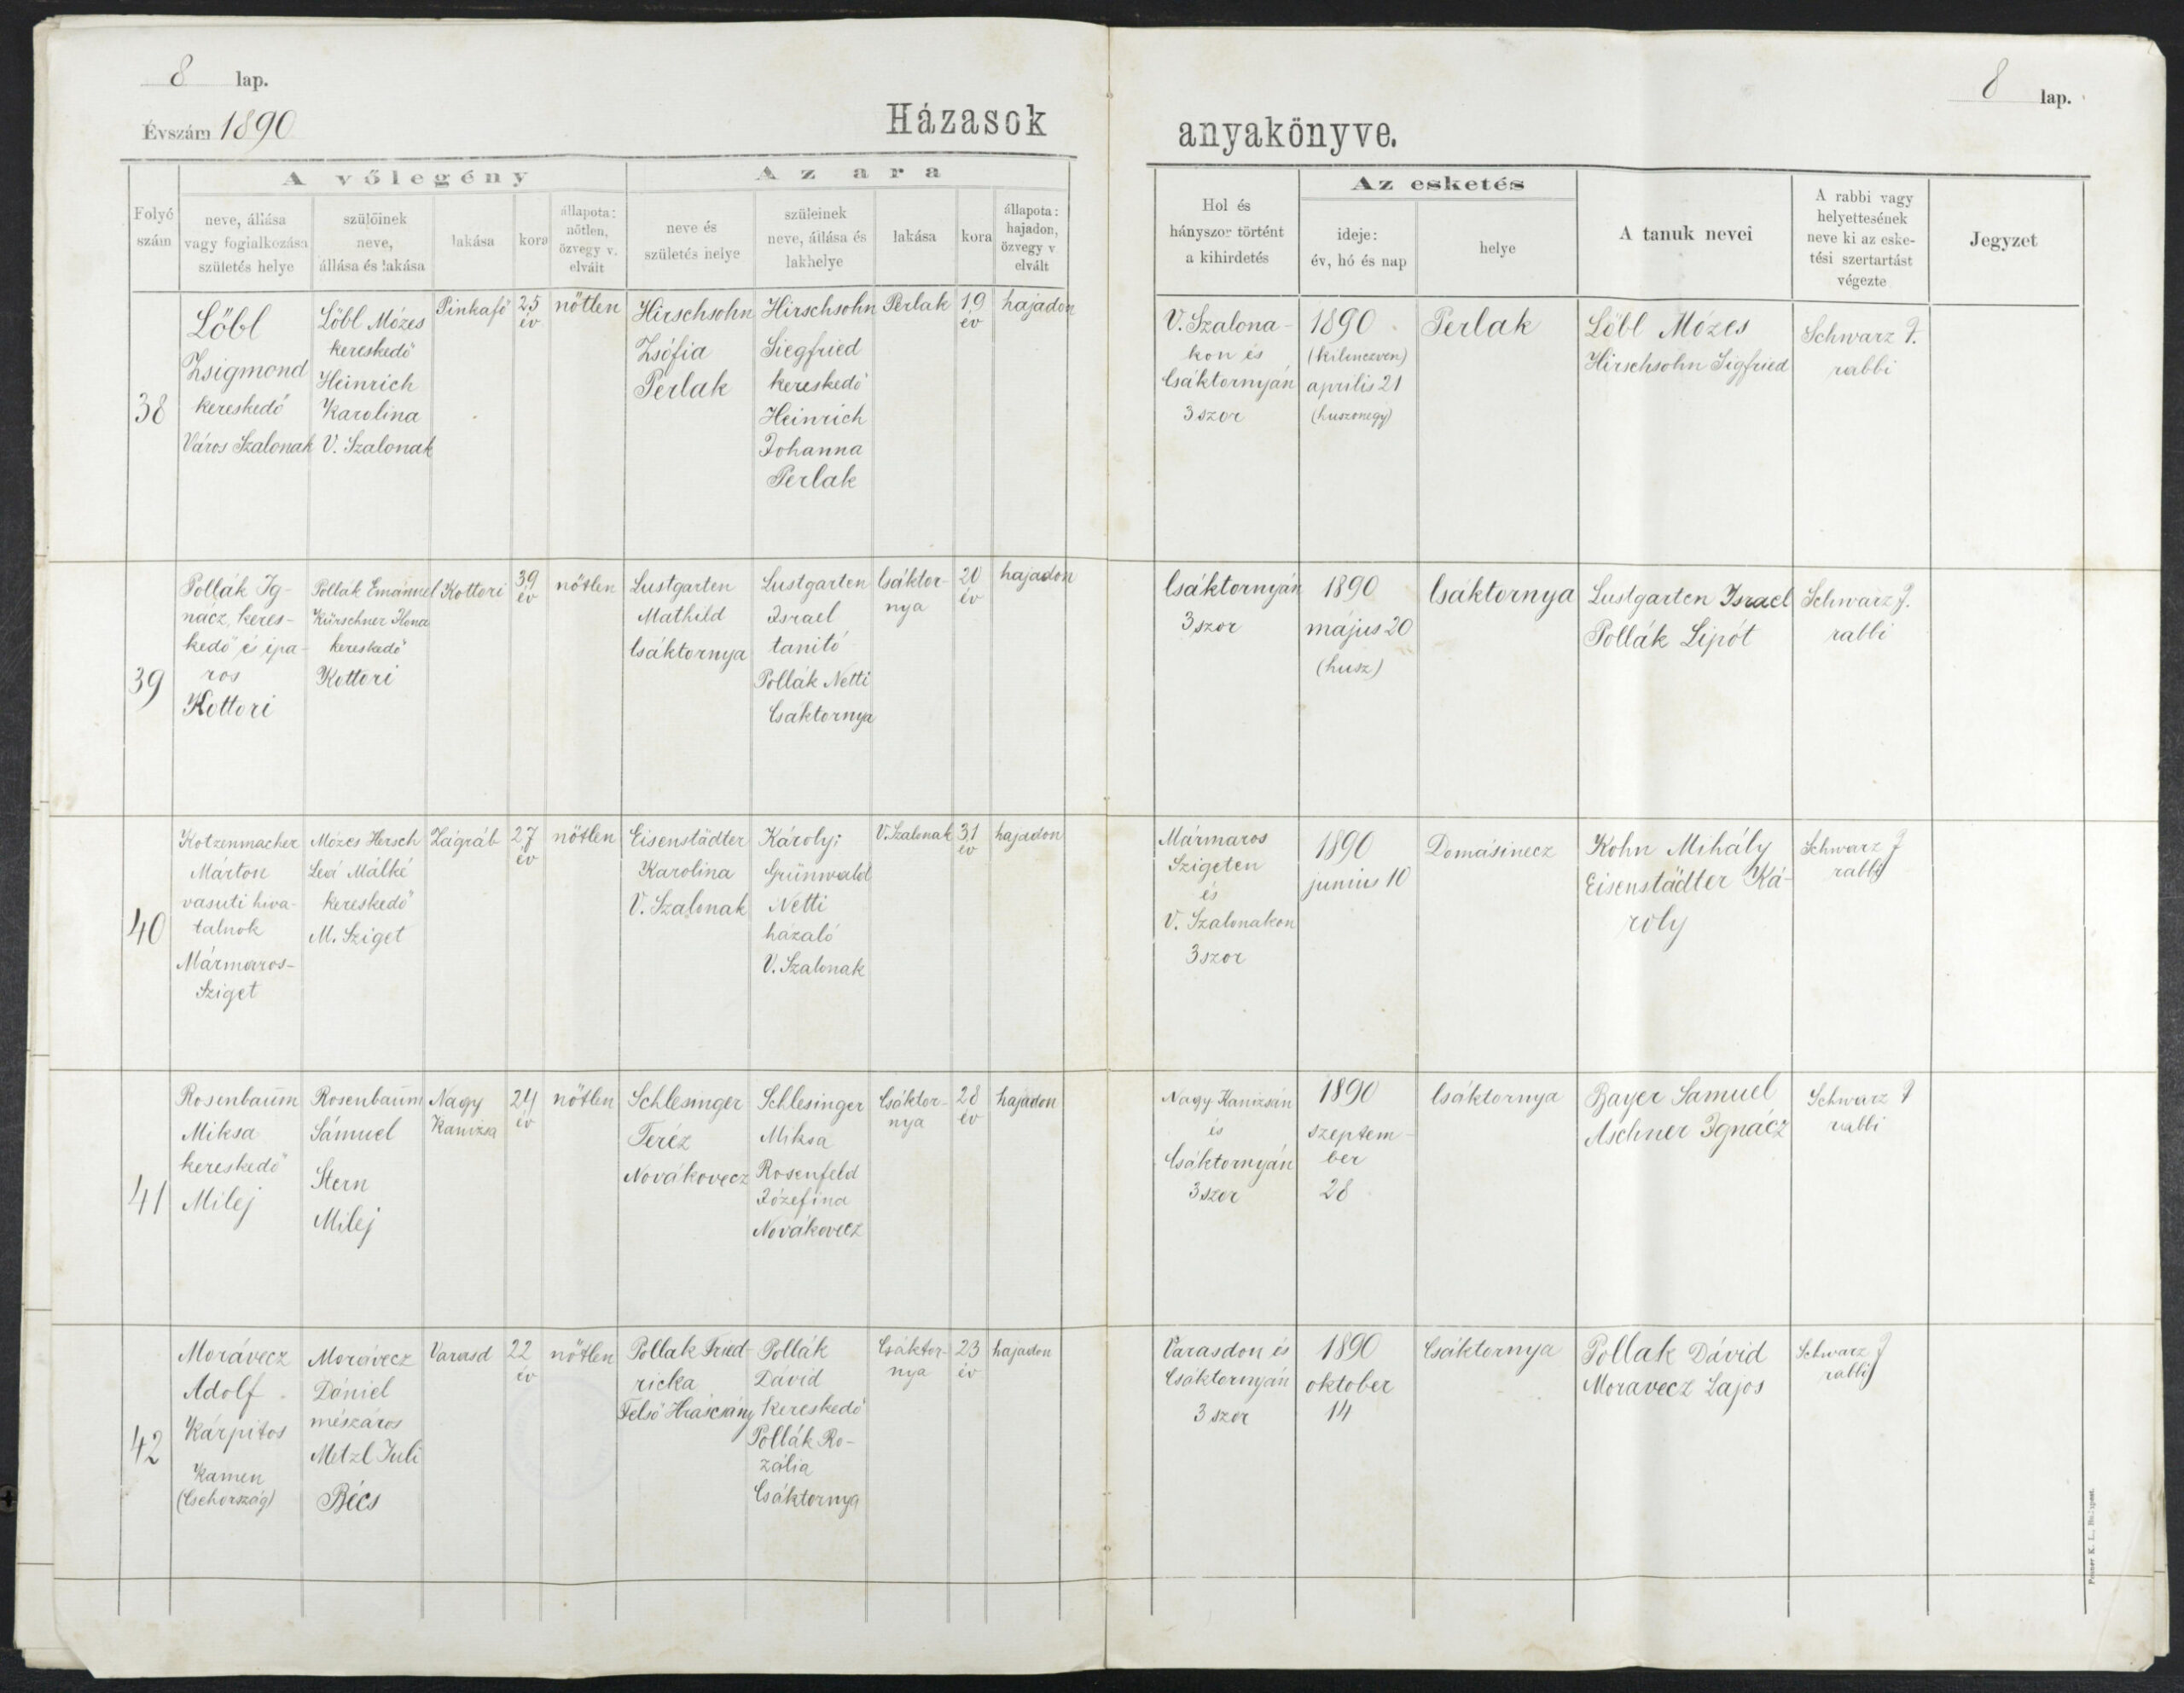 8 lap.
Évszám 1890
Házasok
A vőlegény
Az ara
Folyó szám
neve, állása vagy foglalkozása születés helye
szülőinek neve, állása és lakása
lakása
kora
állapota: nőtlen, özvegy v. elvált
neve és születés helye
szüleinek neve, állása és lakhelye
lakása
kora
állapota: hajadon, özvegy v elvált
8 lap.
anyakönyve.
Hol és hányszor történt a kihirdetés
Az esketés
ideje: év, hó és nap
helye
A tanuk nevei
A rabbi vagy helyettesének neve ki az esketési szertartást végezte
Jegyzet
38
Löbl
Zsigmond
kereskedő
Város Szalonak
Löbl Mózes
kereskedő
Heinrich
Karolina
V. Szalonak
Pinkafő
25
év
nőtlen
Hirschsohn
Zsófia
Perlak
Hirschsohn
Siegfried
kereskedő
Heinrich
Johanna
Perlak
Perlak
19
év
hajadon
V. Szalona-
kon és
Csáktornyán
3szor
1890
(kilenczven)
aprilis 21
(huszonegy)
Perlak
Löbl Mózes
Hirschsohn Sigfried
Schwarz J.
rabbi
39
Pollák Ig-
nácz, keres-
kedő és ipa-
ros
Kottori
Pollák Emánuel
Kürschner Ilona
kereskedő
Kottori
Kottori
39
év
nőtlen
Lustgarten
Mathild
Csáktornya
Lustgarten
Israel
tanitó
Pollák Netti
Csaktornya
Csáktor-
nya
20
év
hajadon
Csáktornyán
3szor
1890
május 20
(husz)
Csáktornya
Lustgarten Israel
Pollák Lipót
Schwarz J.
rabbi
40
Kotzenmacher
Márton
vasuti hiva-
talnok
Mármaros-
Sziget
Mózes Hersch
Leá Málké
kereskedő
M. Sziget
Zágráb
27
év
nőtlen
Eisenstädter
Karolina
V. Szalonak
Károly;
Grünwald
Netti
házaló
V. Szalonak
V. Szalonak
31
év
hajadon
Mármaros
Szigeten
és
V. Szalonakon
3szor
1890
junius 10
Domásinecz
Kohn Mihály
Eisenstädter Ká-
roly
Schwarz J
rabbi
41
Rosenbaum
Miksa
kereskedő
Milej
Rosenbaum
Sámuel
Stern
Milej
Nagy
Kanizsa
24
év
nőtlen
Schlesinger
Teréz
Novákovecz
Schlesinger
Miksa
Rosenfeld
Józefina
Novákovecz
Csáktor-
nya
28
év
hajadon
Nagy Kanizsán
és
Csáktornyán
3szor
1890
szeptem-
ber
28
Csáktornya
Bayer Samuel
Aschner Ignácz
Schwarz J
rabbi
42
Morávecz
Adolf
Kárpitos
Kamen
(Csehország)
Morávecz
Dániel
mészáros
Metzl Juli
Bécs
Varasd
22
év
nőtlen
Pollak Fried-
ricka
Felső Hrascsány
Pollák
Dávid
kereskedő
Pollák Ro-
zália
Csáktornya
Csáktor-
nya
23
év
hajadon
Varasdon és
Csáktornyán
3 szor
1890
oktober
14
Csáktornya
Pollak Dávid
Moravecz Lajos
Schwarz J
rabbi
Posner K. L., Budapest.